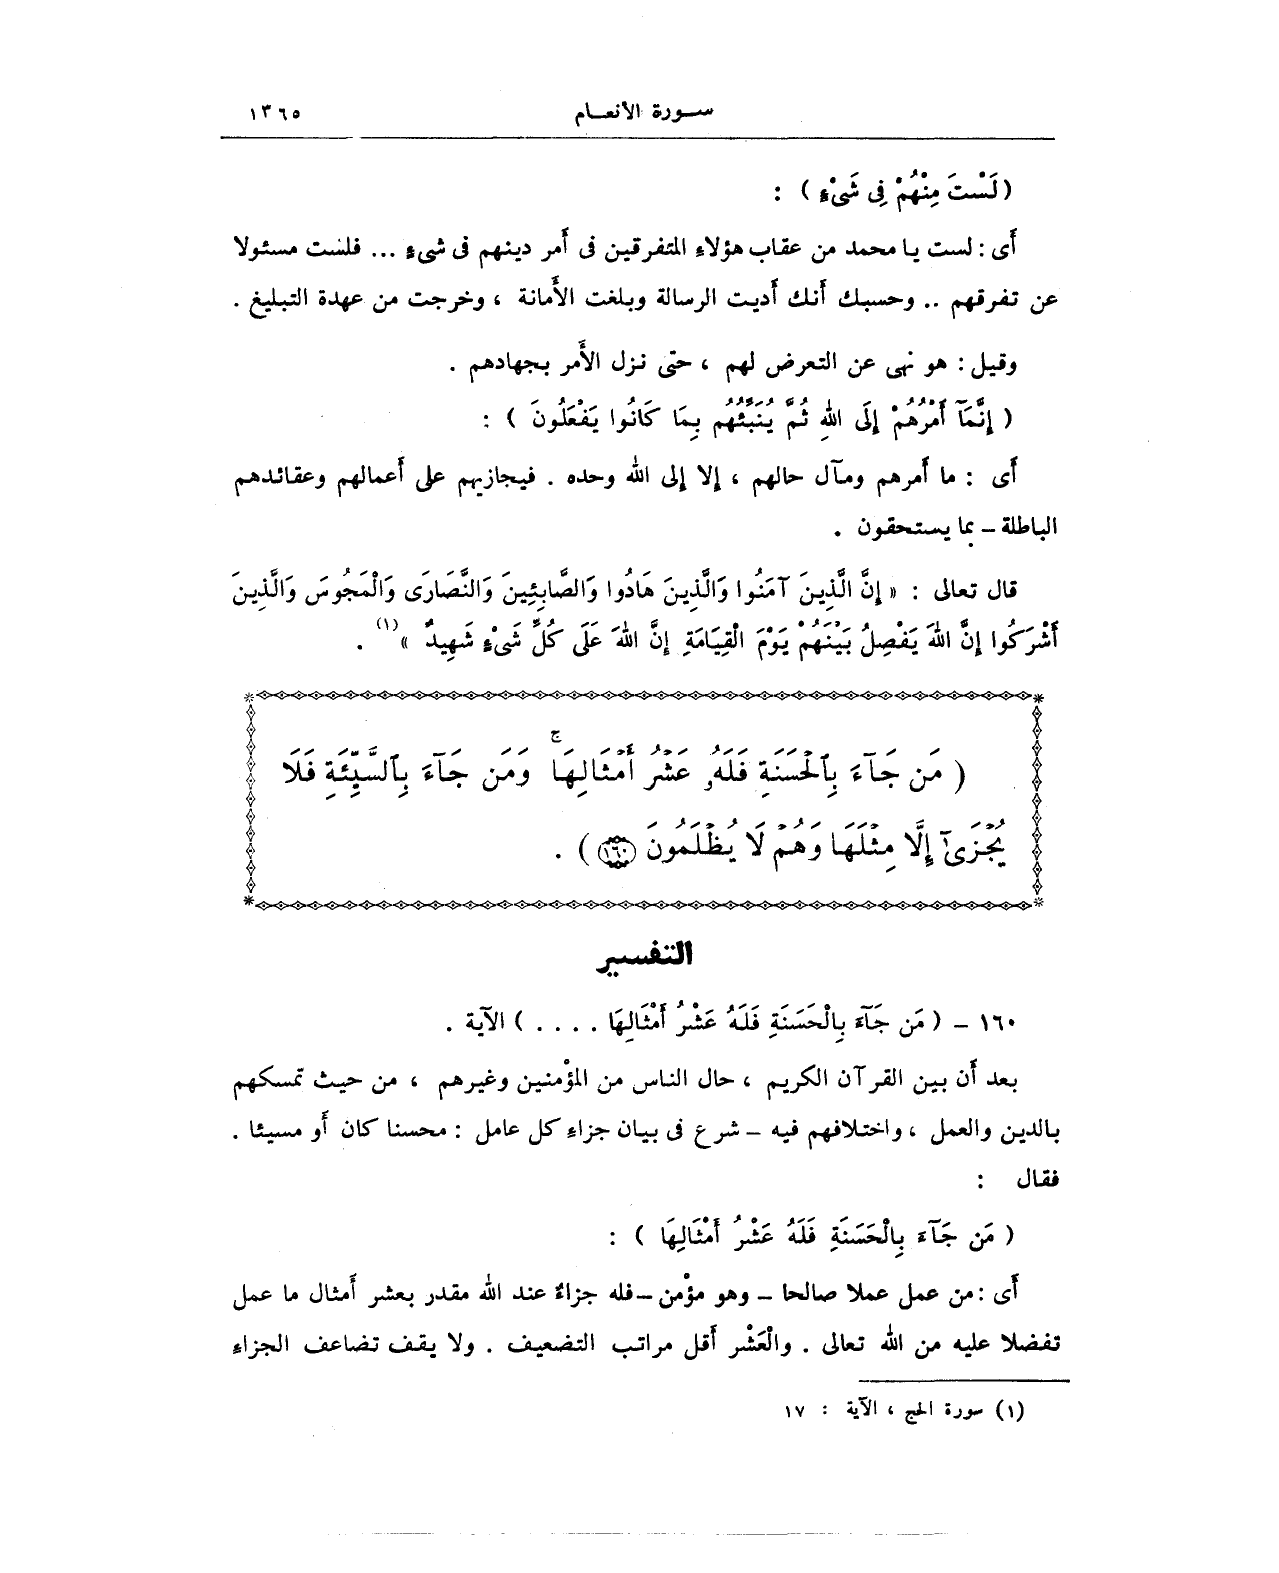 سورة الأنعام ١٣٦٥
(لَسْتَ مِنْهُمْ فِى شَىْءٍ) :
أى : لست يا محمد من عقاب هؤلاءِ المتفرقين فى أمر دينهم فى شىءٍ ... فلست مسئولا
عن تفرقهم .. وحسبك أنك أديت الرسالة وبلغت الأمانة ، وخرجت من عهدة التبليغ .
وقيل : هو نهى عن التعرض لهم ، حتى نزل الأمر بجهادهم .
( إِنَّمَآ أَمْرُهُمْ إِلَى اللهِ ثُمَّ يُنَبِّئُهُم بِمَا كَانُوا يَفْعَلُونَ ) :
أى : ما أمرهم ومآل حالهم ، إلا إلى الله وحده . فيجازيهم على أعمالهم وعقائدهم
الباطلة - بما يستحقون .
قال تعالى : « إِنَّ الَّذِينَ آمَنُوا وَالَّذِينَ هَادُوا وَالصَّابِئِينَ وَالنَّصَارَى وَالْمَجُوسَ وَالَّذِينَ
أَشْرَكُوا إِنَّ اللهَ يَفْصِلُ بَيْنَهُمْ يَوْمَ الْقِيَامَةِ إِنَّ اللهَ عَلَى كُلِّ شَىْءٍ شَهِيدٌ »(١) .
( مَن جَآءَ بِٱلْحَسَنَةِ فَلَهُۥ عَشْرُ أَمْثَالِهَا ۚ وَمَن جَآءَ بِٱلسَّيِّئَةِ فَلَا
يُجْزَىٰٓ إِلَّا مِثْلَهَا وَهُمْ لَا يُظْلَمُونَ ١٦٠ ) .
التفسير
١٦٠ - ( مَن جَآءَ بِالْحَسَنَةِ فَلَهُ عَشْرُ أَمْثَالِهَا . . . . ) الآية .
بعد أن بين القرآن الكريم ، حال الناس من المؤْمنين وغيرهم ، من حيث تمسكهم
بالدين والعمل ، واختلافهم فيه - شرع فى بيان جزاءِ كل عامل : محسنا كان أو مسيئا .
فقال :
( مَن جَآءَ بِالْحَسَنَةِ فَلَهُ عَشْرُ أَمْثَالِهَا ) :
أى : من عمل عملا صالحا - وهو مؤْمن - فله جزاءٌ عند الله مقدر بعشر أمثال ما عمل
تفضلا عليه من الله تعالى . والْعَشْر أقل مراتب التضعيف . ولا يقف تضاعف الجزاء
(١) سورة الحج ، الآية : ١٧